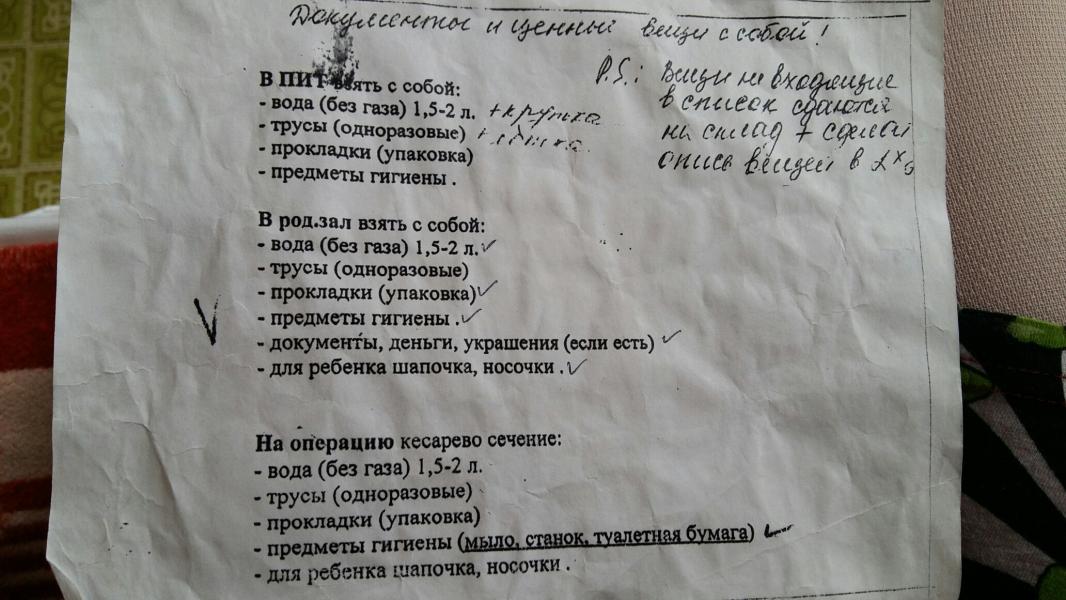 Документы и ценный вещи с собой!
P.S.: Вещи не входящие
в список сдаются
на склад + сделай
опись вещей в 2х
В ПИТ взять с собой:
- вода (без газа) 1,5-2 л. + кружка
- трусы (одноразовые) +
- прокладки (упаковка)
- предметы гигиены .
В род.зал взять с собой:
- вода (без газа) 1,5-2 л.
- трусы (одноразовые)
- прокладки (упаковка)
- предметы гигиены .
- документы, деньги, украшения (если есть)
- для ребенка шапочка, носочки .
На операцию кесарево сечение:
- вода (без газа) 1,5-2 л.
- трусы (одноразовые)
- прокладки (упаковка)
- предметы гигиены (мыло, станок, туалетная бумага)
- для ребенка шапочка, носочки .